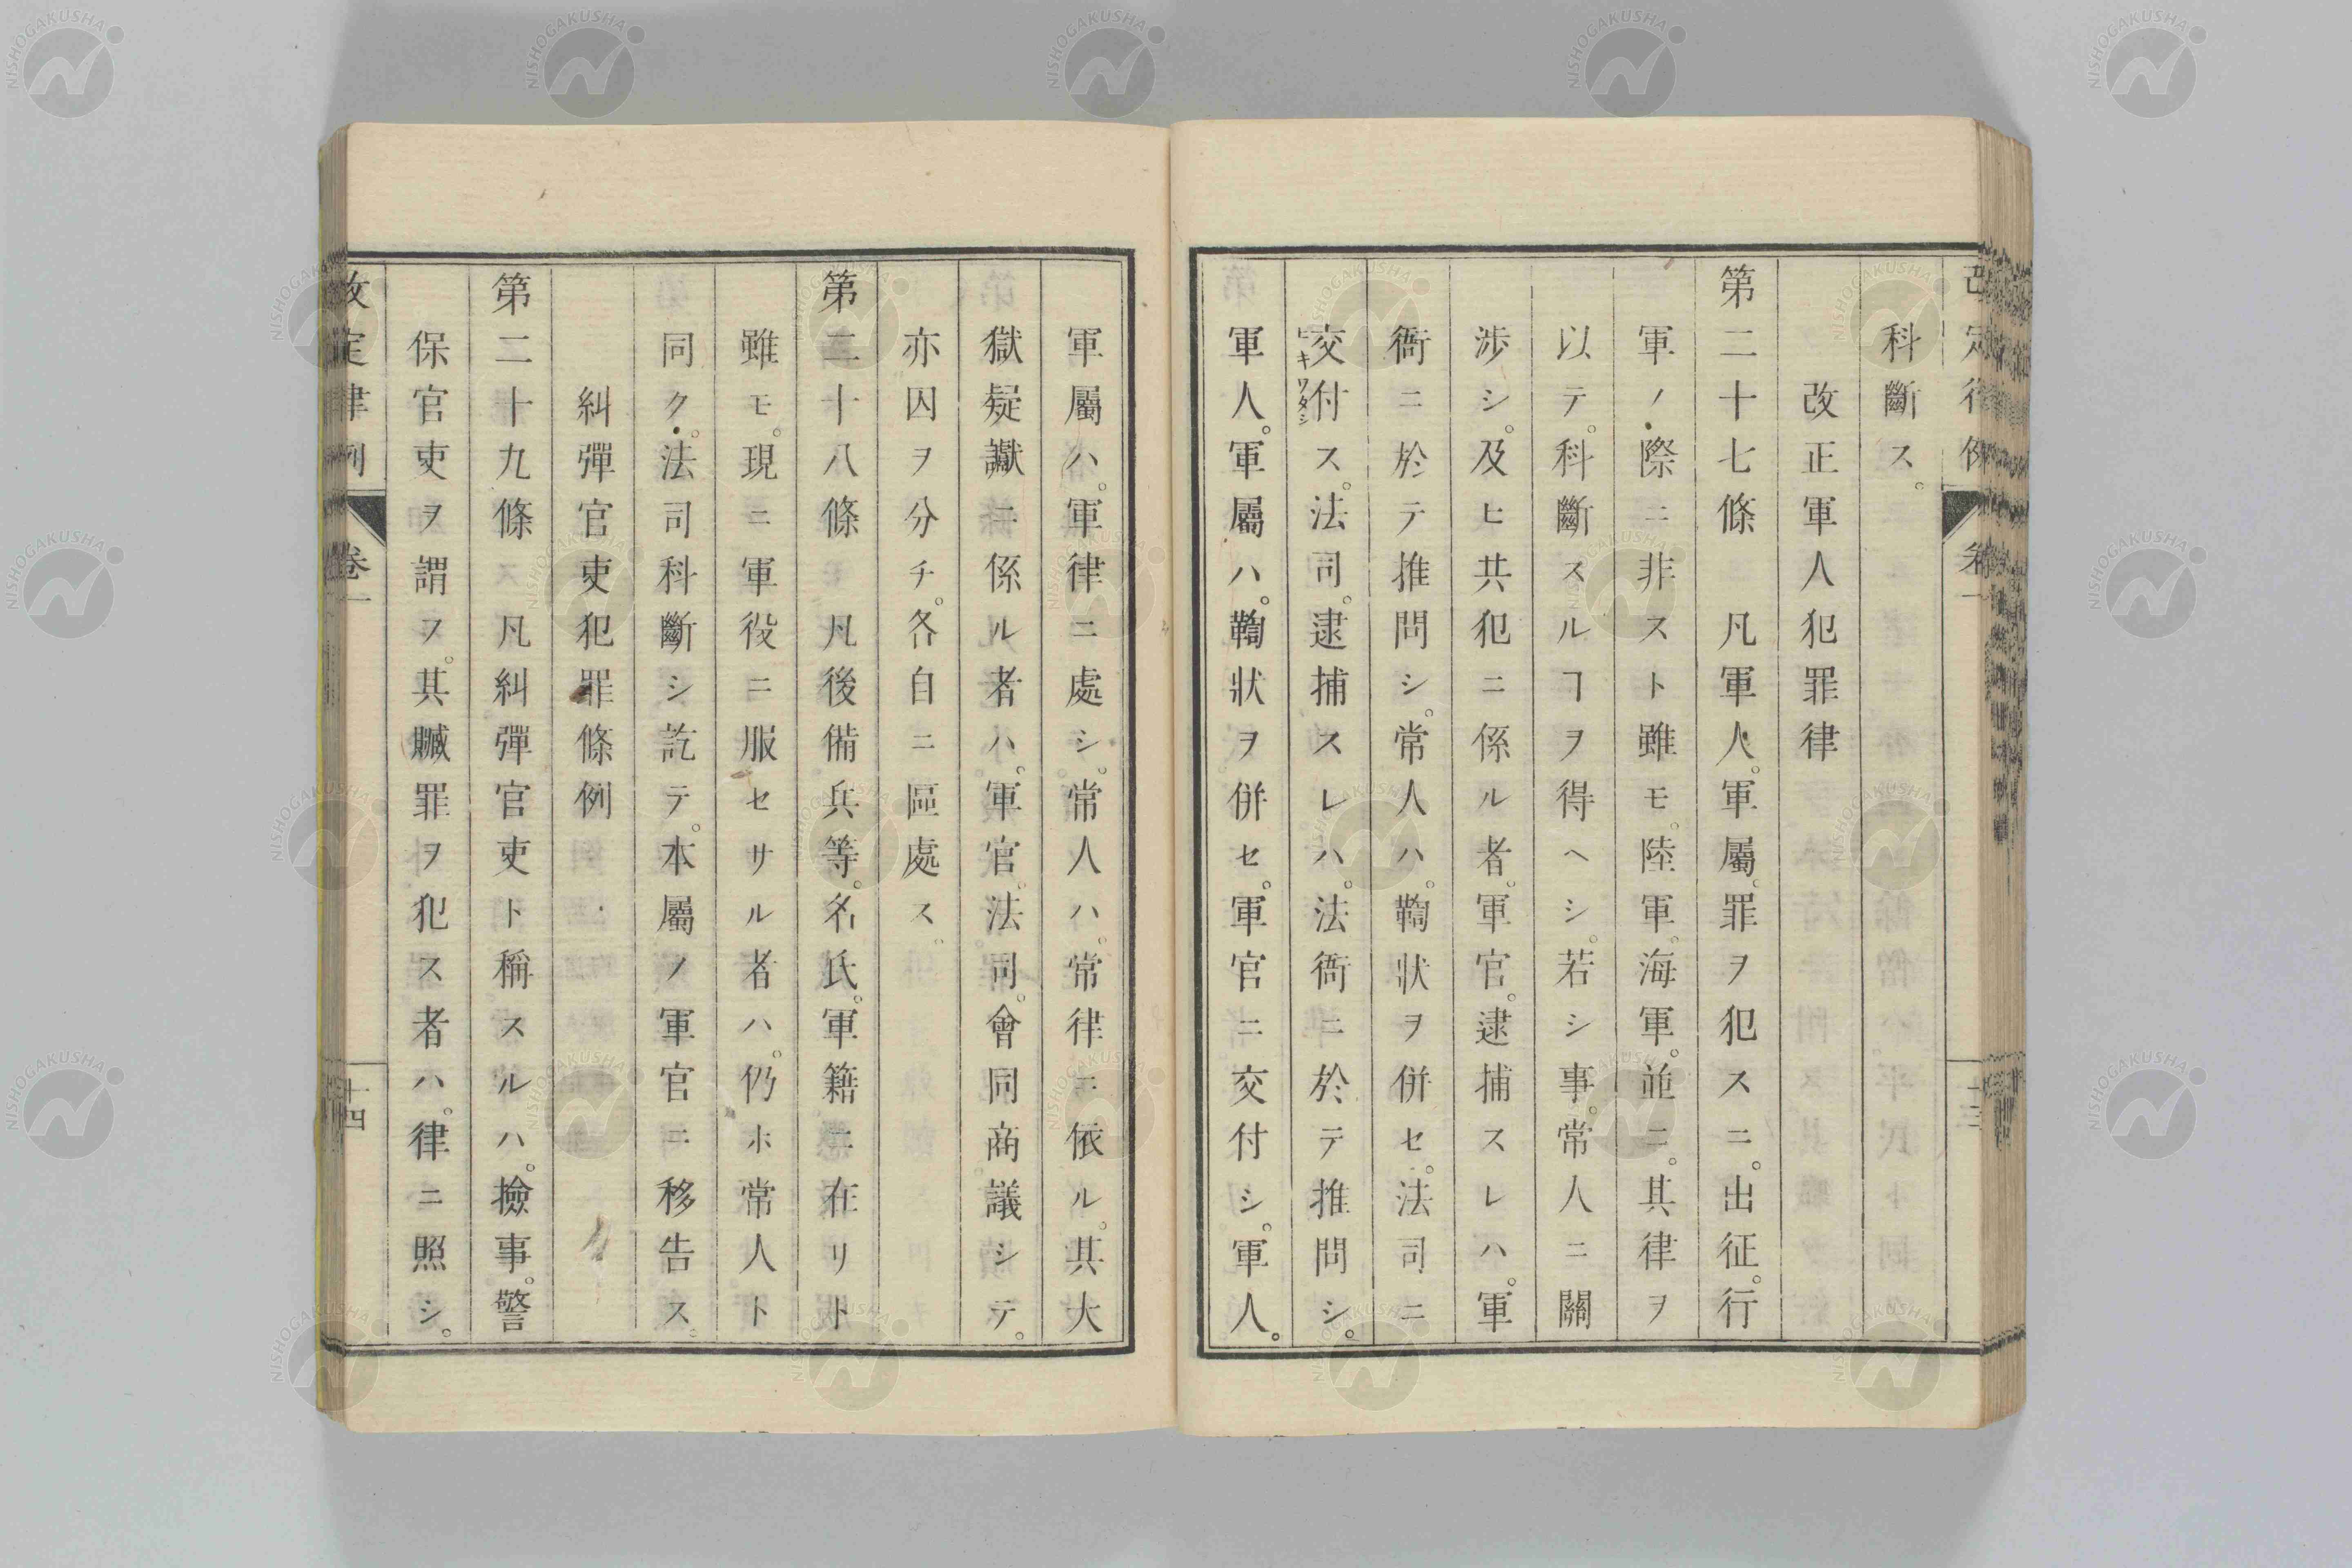 改定律例 卷一 十三
科斷ス。
改正軍人犯罪律
第二十七條 凡軍人。軍屬。罪ヲ犯スニ。出征。行
軍ノ際ニ非スト雖モ。陸軍。海軍。並ニ。其律ヲ
以テ。科斷スルヿヲ得ヘシ。若シ事。常人ニ關
渉シ。及ヒ共犯ニ係ル者。軍官。逮捕スレハ。軍
衙ニ於テ推問シ。常人ハ。鞫狀ヲ併セ。法司ニ
交付ス。法司。逮捕スレハ。法衙ニ於テ推問シ。
ヒキワタシ
軍人。軍屬ハ。鞫狀ヲ併セ。軍官ニ交付シ。軍人。
軍屬ハ。軍律ニ處シ。常人ハ。常律ニ依ル。其大
獄疑讞ニ係ル者ハ。軍官。法司。會同商議シテ。
亦囚ヲ分チ。各自ニ區處ス。
第二十八條 凡後備兵等。名氏。軍籍ニ在リト
雖モ。現ニ軍役ニ服セサル者ハ。仍ホ常人ト
同ク。法司科斷シ訖テ。本屬ノ軍官ニ移告ス。
糾彈官吏犯罪條例
第二十九條 凡糾彈官吏ト稱スルハ。撿事。警
保官吏ヲ謂フ。其贓罪ヲ犯ス者ハ。律ニ照シ。
改定律例 卷一 十四